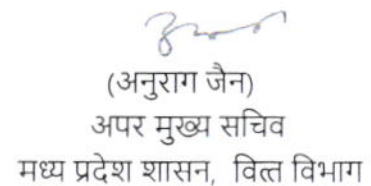 (अनुराग जैन)
अपर मुख्य सचिव
मध्य प्रदेश शासन, वित्त विभाग